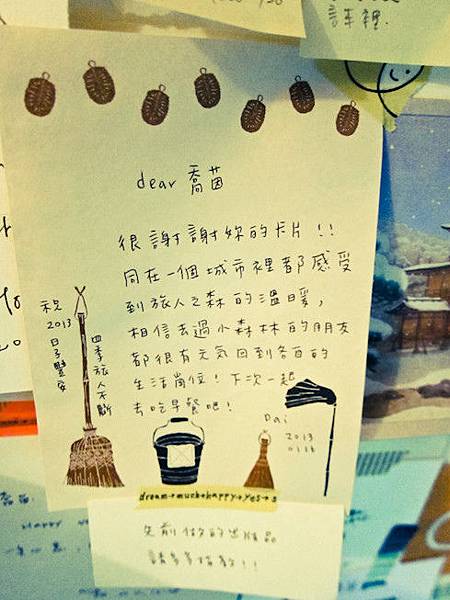 詳裡.
dear 喬茵
很謝謝妳的卡片!!
同在一個城市裡都感受
到旅人之森的溫暖,
相信去過小森林的朋友
都很有元氣回到各自的
生活崗位!下次一起
去吃早餐吧!
Dai
2013
01.16
祝
2013
日子豐安
四季旅人不斷
dream+much+happy+yes→s
先前做的出版品
請多多指教!!
Happy